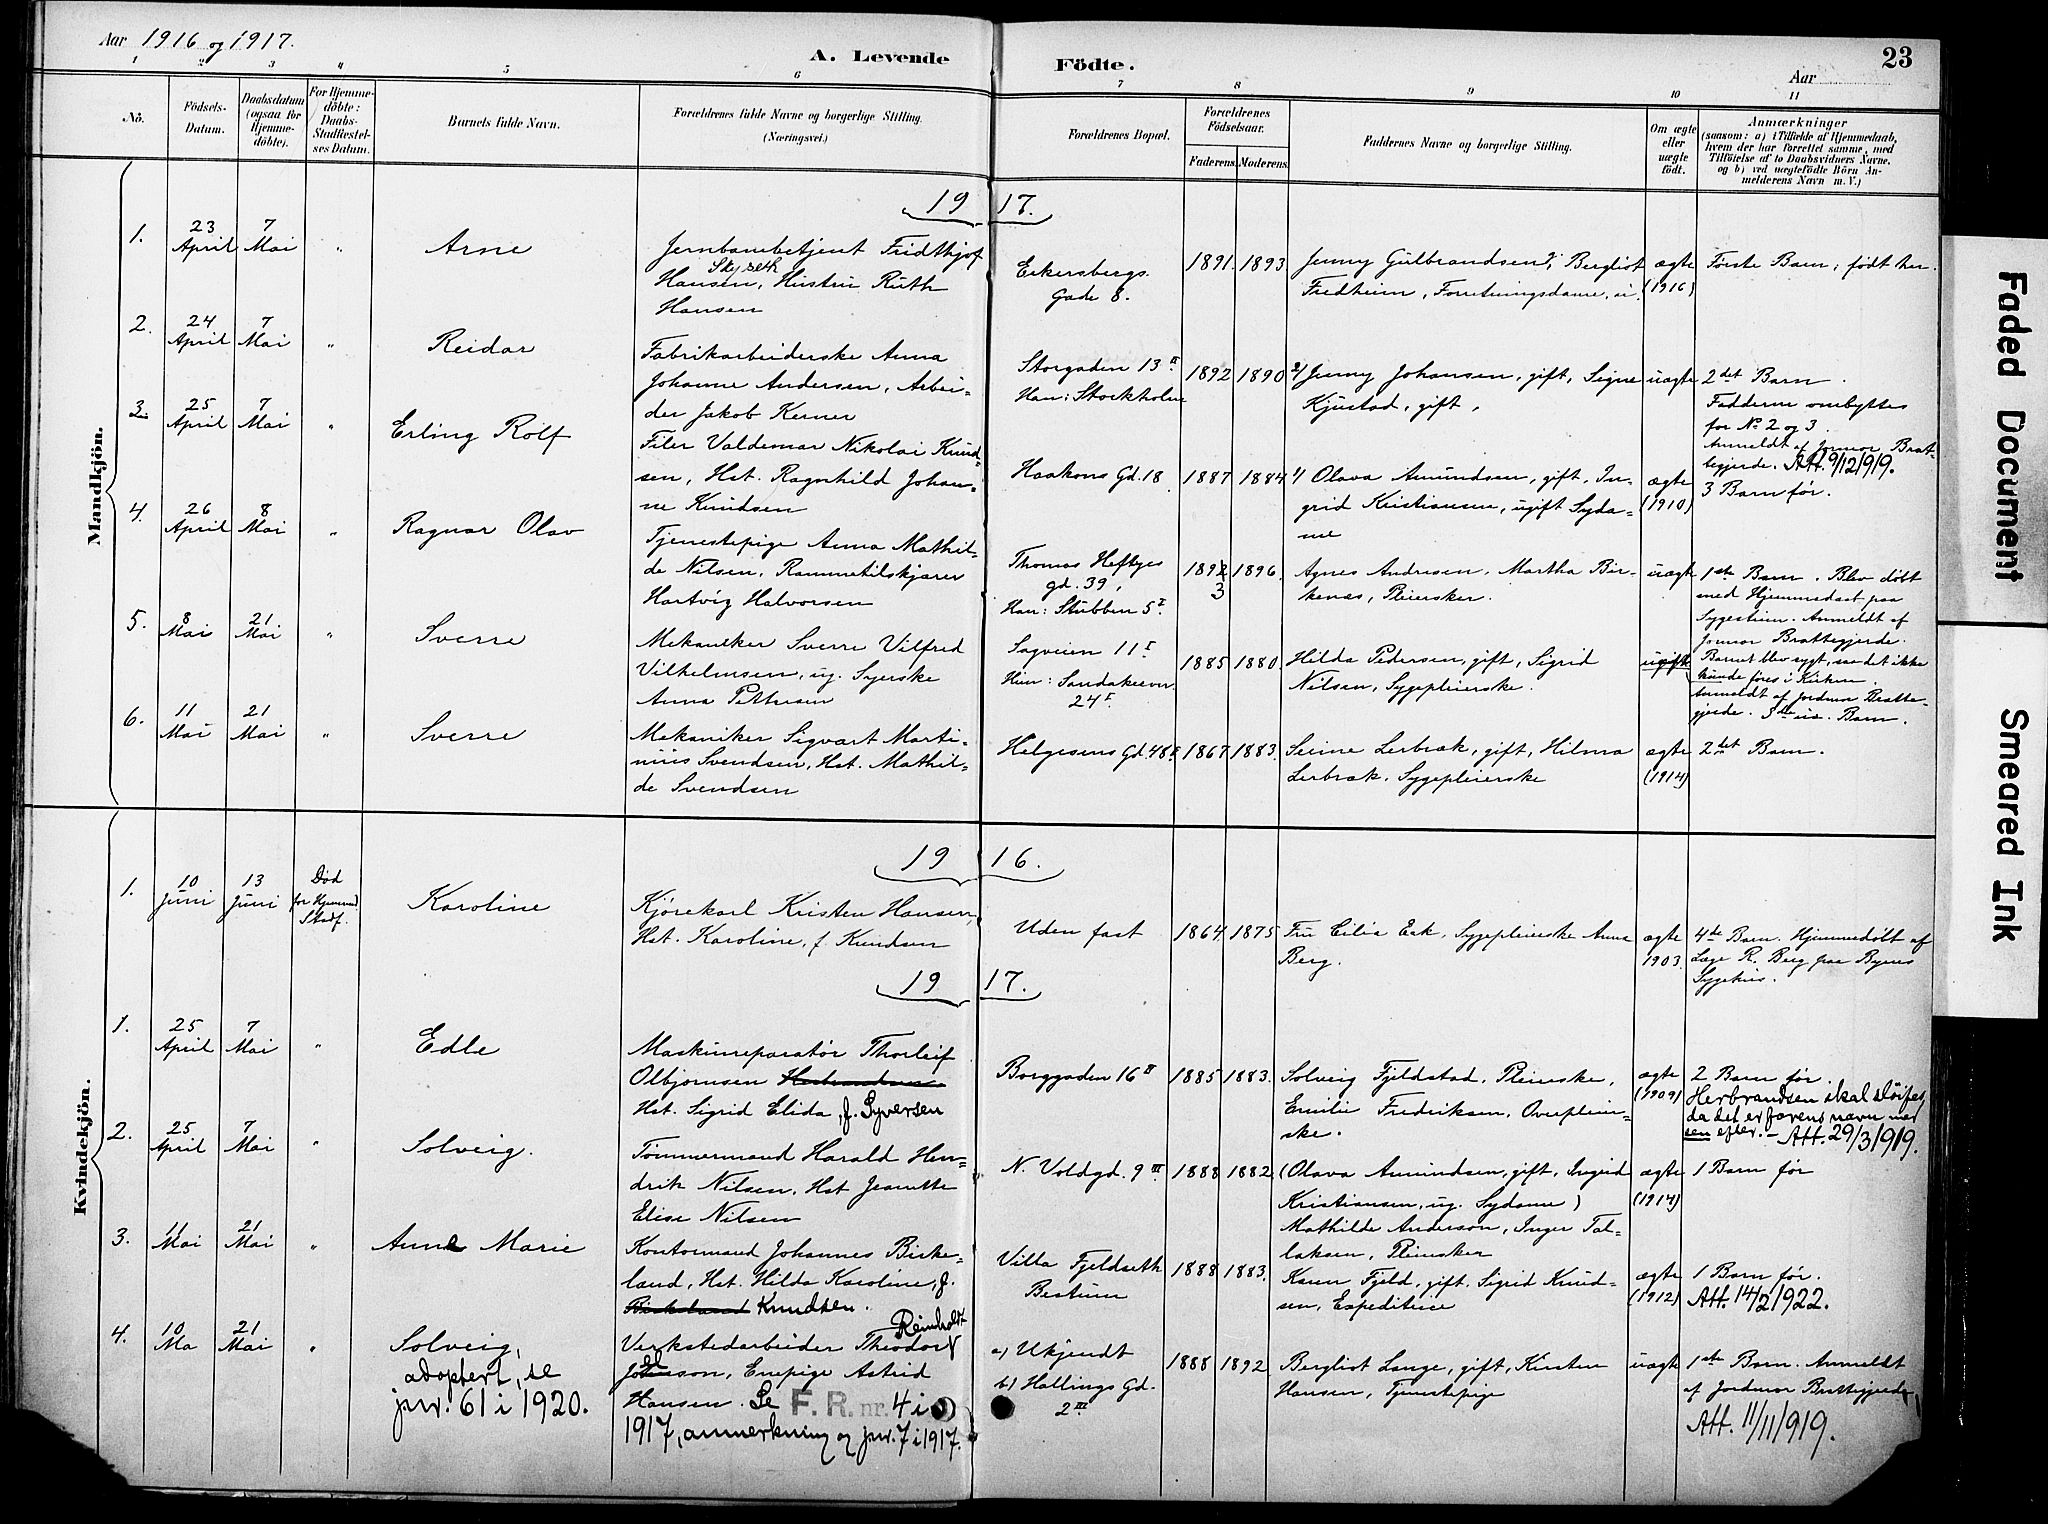 Aar 1916 og 1917.
A. Levende Födte.
Aar
23
1 2 3 4 5 6 7 8 9 10 11
No.
Födsels-Datum.
Daabsdatum (ogsaa for Hjemme-döbte).
For Hjemme-döbte: Daabs-Stadfæstel-ses Datum.
Barnets fulde Navn.
Forældrenes fulde Navne og borgerlige Stilling.
(Næringsvei.)
Forældrenes Bopæl.
Forældrenes Födselsaar.
Faderens. Moderens.
Faddernes Navne og borgerlige Stilling.
Om ægte eller uægte födt.
Anmærkninger
(saasom: a) i Tilfælde af Hjemmedaab,
hvem der har forrettet samme, med
Tilföielse af to Daabsvidners Navne,
og b) ved uægtefödte Börn An-
melderens Navn m. V.)
Mandkjön.
1917.
1. 23 April 7 Mai " Arne
Jernbanebetjent Fridthjof
Skyseth
Hansen, Hustru Ruth
Hansen
Eckersbergs
Gade 8.
1891. 1893
Jenny Gulbrandsen, Bergliot
Fredheim, Forretningsdame,
ægte
(1916)
Første Barn, født her.
2. 24 April 7 Mai " Reidar
Fabrikarbeiderske Anna
Johanne Andersen, Arbei-
der Jakob Kerner
Storgaden 13 II
Han: Stockholm
1892 1890
2/ Jenny Johansen, gift, Signe
Kjustad, gift,
uægte
2det Barn.
Fadderne ombyttes
for No 2 og 3.
Anmeldt af Jormor Brat-
tegjerde. Att. 9/12 1919.
3. 25 April 7 Mai " Erling Rolf
Filer Valdemar Nikolai Knud-
sen, Hst. Ragnhild Johan-
ne Knudsen
Haakons Gd. 18
1887 1884
1/ Olava Amundsen, gift, In-
grid Kristiansen, ugift Syda-
me
ægte
(1910)
3 Barn før.
4. 26 April 8 Mai " Ragnar Olav
Tjenestepige Anna Mathil-
de Nilsen, Rammetilskjærer
Hartvig Halvorsen
Thomas Heftyes
gd. 39,
Han: Stubben 5 I
1892 1896.
3
Agnes Andresen, Martha Bir-
kenæs, Pleiersker.
uægte
1ste Barn. Blev döbt
med Hjemmedaab paa
Sygestuen. Anmeldt af
Jormor Brattegjerde.
5. 8 Mai 21 Mai " Sverre
Mekaniker Sverre Vilfred
Vilhelmsen, ug. Syerske
Anna Pettersen
Sagveien 11 I
Hun: Sandakerv.
24 I
1885 1880
Hilda Pedersen, gift, Sigrid
Nilsen, Sygepleierske.
ugifte
Barnet blev sygt, saa det ikke
kunde føres i Kirken.
Anmeldt af Jordmor Bratte-
gjerde. 3die u. Barn.
6. 11 Mai 21 Mai " Sverre
Mekaniker Sigvart Marti-
nius Svendsen, Hst. Mathil-
de Svendsen
Helgesens Gd. 48
1867 1883.
Serine Lerbrak, gift, Hilma
Lerbrak, Sygepleierske
ægte
(1914)
2det Barn.
Kvindekjön.
1916.
1. 10 Juni 13 Juni Död for Hjemmed. Stadf. Karoline
Kjørekarl Kristen Hansen,
Hst. Karoline, f. Knudsen
Uden fast
1864 1875
Fru Cilia Eak, Sygepleierske Anna
Berg.
ægte
1903.
4de Barn. Hjemmedöbt af
Læge R. Berg paa Byens
Sygehus.
1917.
1. 25 April 7 Mai " Edle
Maskinreparatør Thorleif
Olbjørnsen Herbrandsen
Hst. Sigrid Elida, f. Syversen
Borggaden 16 II
1885 1883.
Solveig Fjeldstad, Pleierske,
Emilie Fredriksen, Overpleier-
ske.
ægte
(1909)
2 Barn før.
Herbrandsen skal sløifes,
da det er farens navn med
sen efter. - Att. 29/3 1919.
2. 25 April 7 Mai " Solveig.
Tømmermand Harald Hen-
drik Nilsen, Hst Jeanette
Elise Nilsen
N. Voldgd. 9 III
1888 1882
(Olava Amundsen, gift, Ingrid
Kristiansen, ug. Sydame)
Mathilde Anderson, Inger Tal-
laksen, Pleiersker
ægte
(1914)
1 Barn før
3. 11 Mai 21 Mai " Anne Marie
Kontormand Johannes Birke-
land, Hst. Hilda Karoline, f.
Birkeland Knudsen.
Villa Fjeldseth
Bestum
1888 1883.
Karen Fjeld, gift, Sigrid Knud-
sen, Expeditrice
ægte
(1912)
1 Barn før.
Att. 14/2 1922.
4. 10 Ma 21 Mai " Solveig,
adoptert, se
jnr. 61 i 1920.
Reinholdt
Verkstedarbeider Theodor
Johnson, Enepige Astrid
Hansen. Se F. R. nr. 4 i
1917, anmerkning og jnr. 7 i 1917.
a) Ukjendt
b) Hallings Gd.
2 III
1888 1892
Bergliot Lange, gift, Kirsten
Hansen, Tjenestepige
uægte
1ste Barn. Anmeldt
af Jordmor Brattegjerde
Att. 11/11 1919.
Faded Document
Smeared Ink